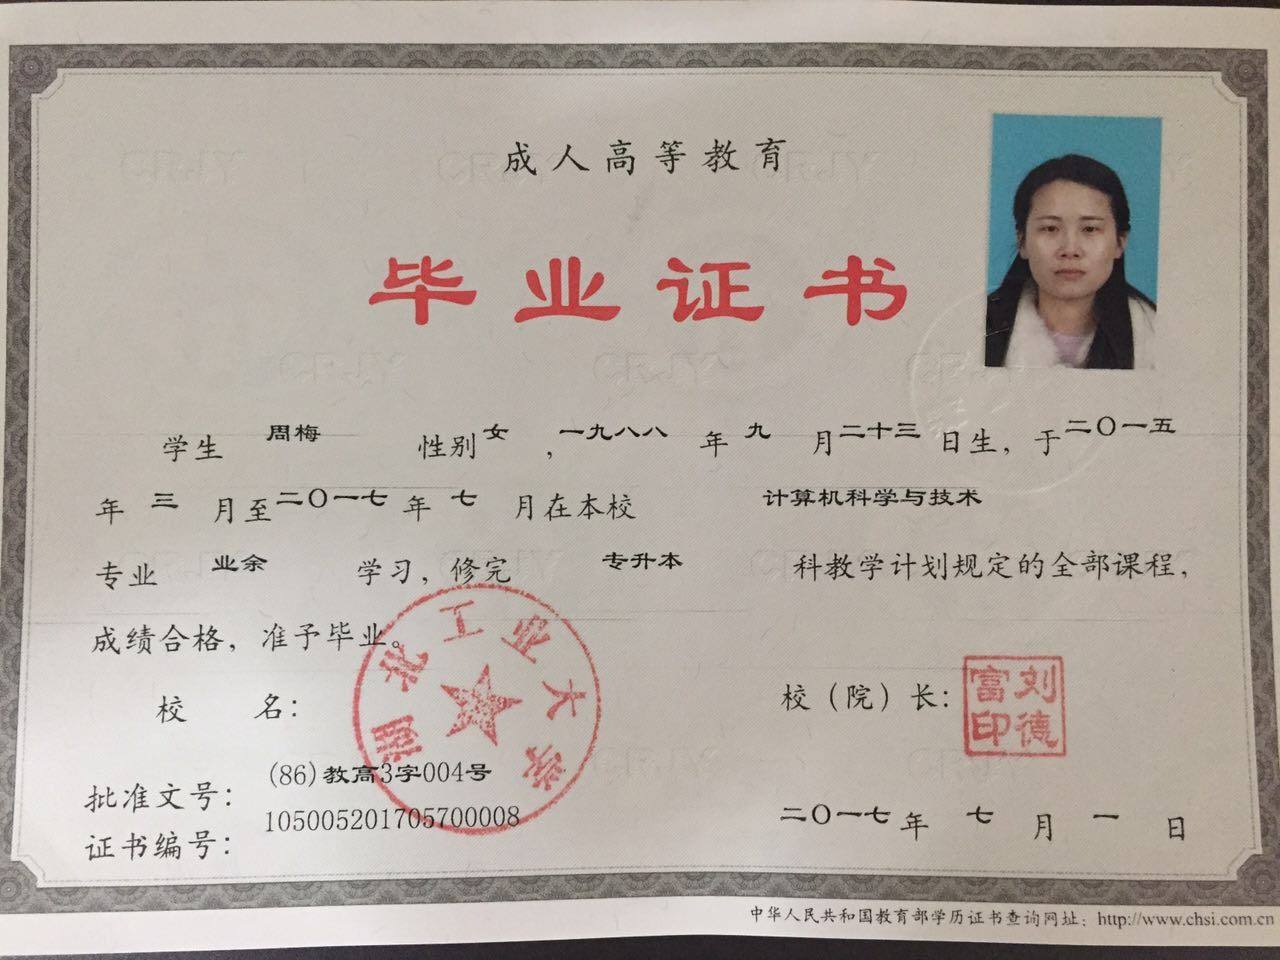 成人高等教育
毕业证书
学生 周梅 性别 女 , 一九八八 年 九 月 二十三 日生, 于 二〇一五
年 三 月至 二〇一七 年 七 月在本校 计算机科学与技术
专业 业余 学习, 修完 专升本 科教学计划规定的全部课程,
成绩合格, 准予毕业。
校 名:
湖北工业大学
校（院）长:
刘德富印
批准文号: (86)教高3字004号
证书编号: 105005201705700008
二〇一七 年 七 月 一 日
中华人民共和国教育部学历证书查询网址: http://www.chsi.com.cn